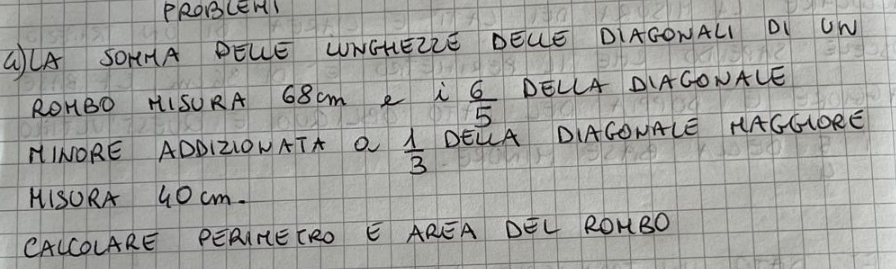 PROBLEMI
a) LA SOMMA DELLE LUNGHEZZE DELLE DIAGONALI DI UN
ROMBO MISURA 68 cm e i 6/5 DELLA DIAGONALE
MINORE ADDIZIONATA a 1/3 DELLA DIAGONALE MAGGIORE
MISURA 40 cm.
CALCOLARE PERIMETRO E AREA DEL ROMBO